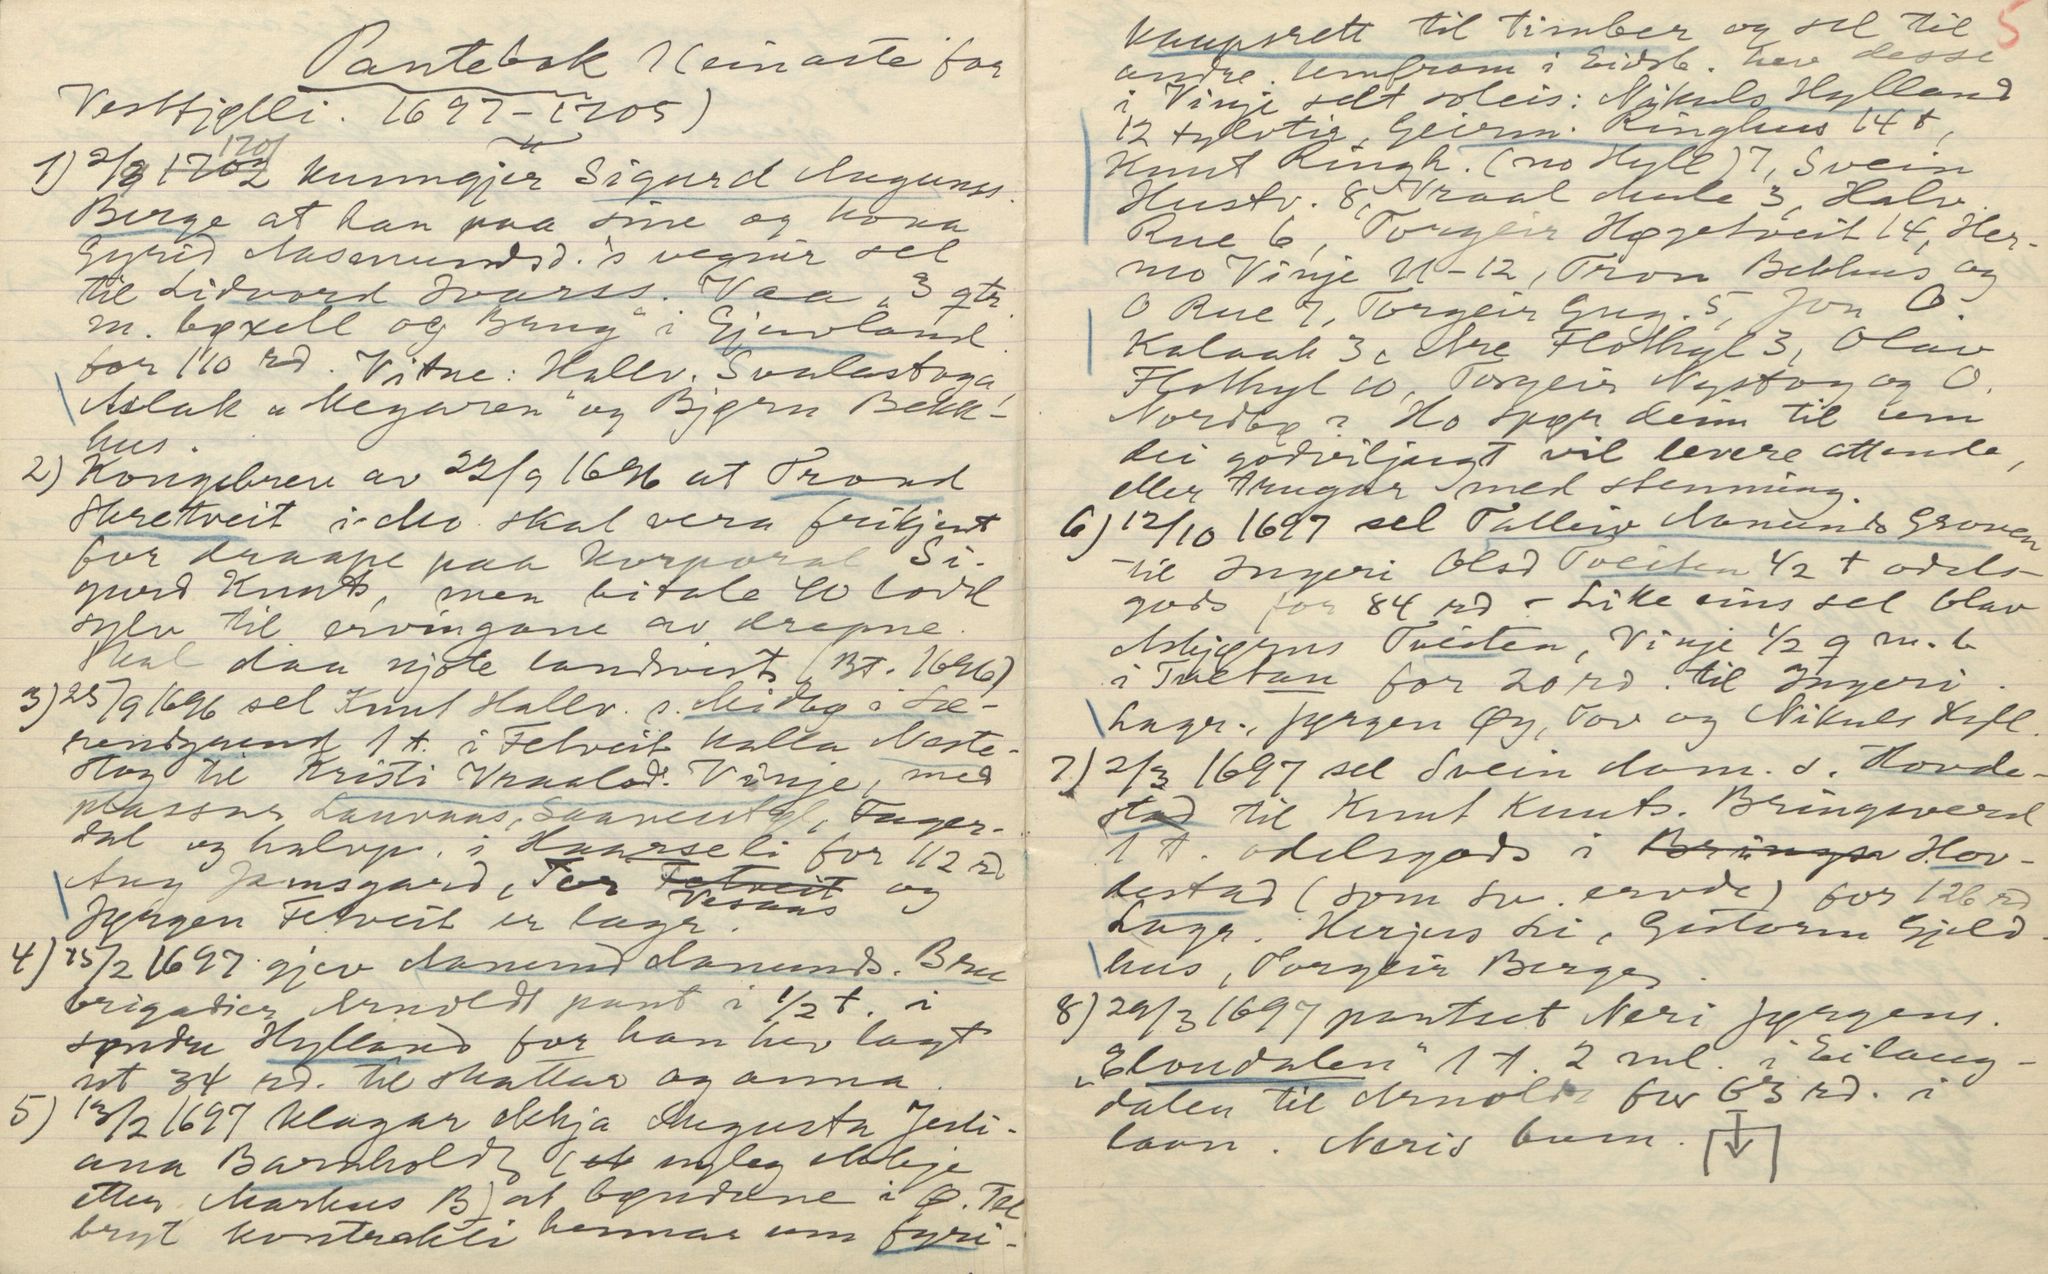 Pantebok 1 (einaste for
Vestfjelli. 1697-1705)
1) 2/3 1702 1701 kunngjer Sigurd Auguns.
Berge at han paa sine og kona
Gyrid Aasmundsd.'s vegnir sel
til Lidvord Ivarss. Vaa "3 qtr
m. bøxell og Brug" i Gjuvland
for 110 rd. Vitne: Hallv. Svalastoga,
Aslak "Megaren" og Bjørn Bekk-
hus.
2) Kongebrev av 22/9 1696 at Trond
Skretveit i Mo skal vera frikjent
for draape paa Korporal Si-
gurd Knuts, men bitale 40 lodd
sylv til ervingane av drepne.
Skal daa njote landsvist (Bt. 1696)
3) 25/9 1696 sel Knut Hallv. s. Midbø i Læ-
rendgrend 1 t. i Fetveit kalla Neste-
stog til Kristi Vraalsd. Vinje, med
plassar Lauvaas, Fager-
dal og halvp. i Haarseli for 112 rd
Amf Jamsgard, Tor Fetveit Vesaas og
Jørgen Fetveit er lagr.
4) 15/2 1697 gjev Aanund Aanunds. Bru
brigadier Arnoldt pant i 1/2 t. i
søndre Hylland for han hev lagt
ut 34 rd. til skattar og anna.
5) 13/2 1697 klagar Ekkja Augusta Jesti-
ana Barnholdt ( Ekkje
etter Markus B) at bøndane i Ø. Tel
bryt kontrakti hennar um fyri-
kaupsrett til timber og sel til 5
andre. Umfram i Eidsb. hev desse
i Vinje selt soleis: Nikuls Hylland
12 tylvtir, Geirm. Ringhus 14 t,
Knut Ringh. (no Hyll) 7, Svein
Hustv. 8, Vraal Mule 3, Halv.
Rue 6, Torgeir Høgetveit 14, Her-
mo Vinje 11-12, Tron Bekhus og
O Rue 7, Torgeir Grug. 5, Jon O.
Kalaak 3, Are Flothyl 3, Olav
Flothyl 10, Torgeir Nystog og O.
Nordbø. Ho spør deim til um
dei godviljugt vil levere attende,
eller trugar med stemning.
6) 12/10 1697 sel Talleiv Aanunds Groven
til Ingeri Olsd Tveiten 1/2 t odels-
gods for 84 rd - Like eins sel Olav
Asbjørns Tveiten, Vinje 1/2 q m. b
i Tveitan for 20 rd. til Ingeri.
Lagr., Jørgen Øy, Tov og Nikuls Hyll.
7) 2/3 1697 sel Svein Aam. s. Hovde-
stad til Knut Knuts. Bringsverd
1 t. odelsgods i Brings Hov-
destad (som Sv. ervde) for 126 rd
Lagr. Herjus Li, Gutorm Gjeld-
hus, Torgeir Berge.
8) 29/3 1697 pantset Neri Jørgens.
"Elvudalen" 1 t. 2 ml. i Eilaug-
dalen til Arnoldt for 63 rd. i
laan. Neris bum.